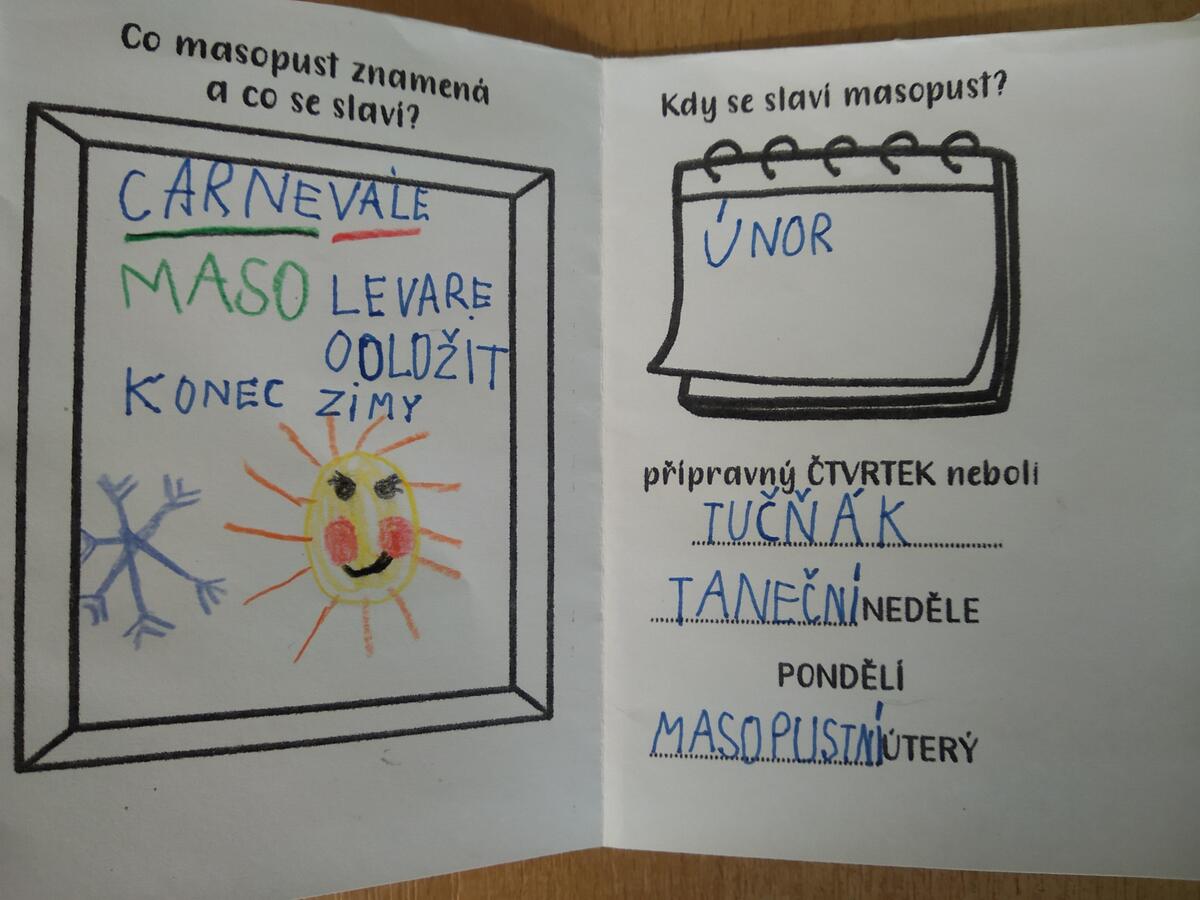 Co masopust znamená
a co se slaví?
CARNEVALE
MASO LEVARE
ODLOŽIT
KONEC ZIMY
Kdy se slaví masopust?
ÚNOR
přípravný ČTVRTEK neboli
TUČŇÁK
TANEČNÍ NEDĚLE
PONDĚLÍ
MASOPUSTNÍ ÚTERÝ